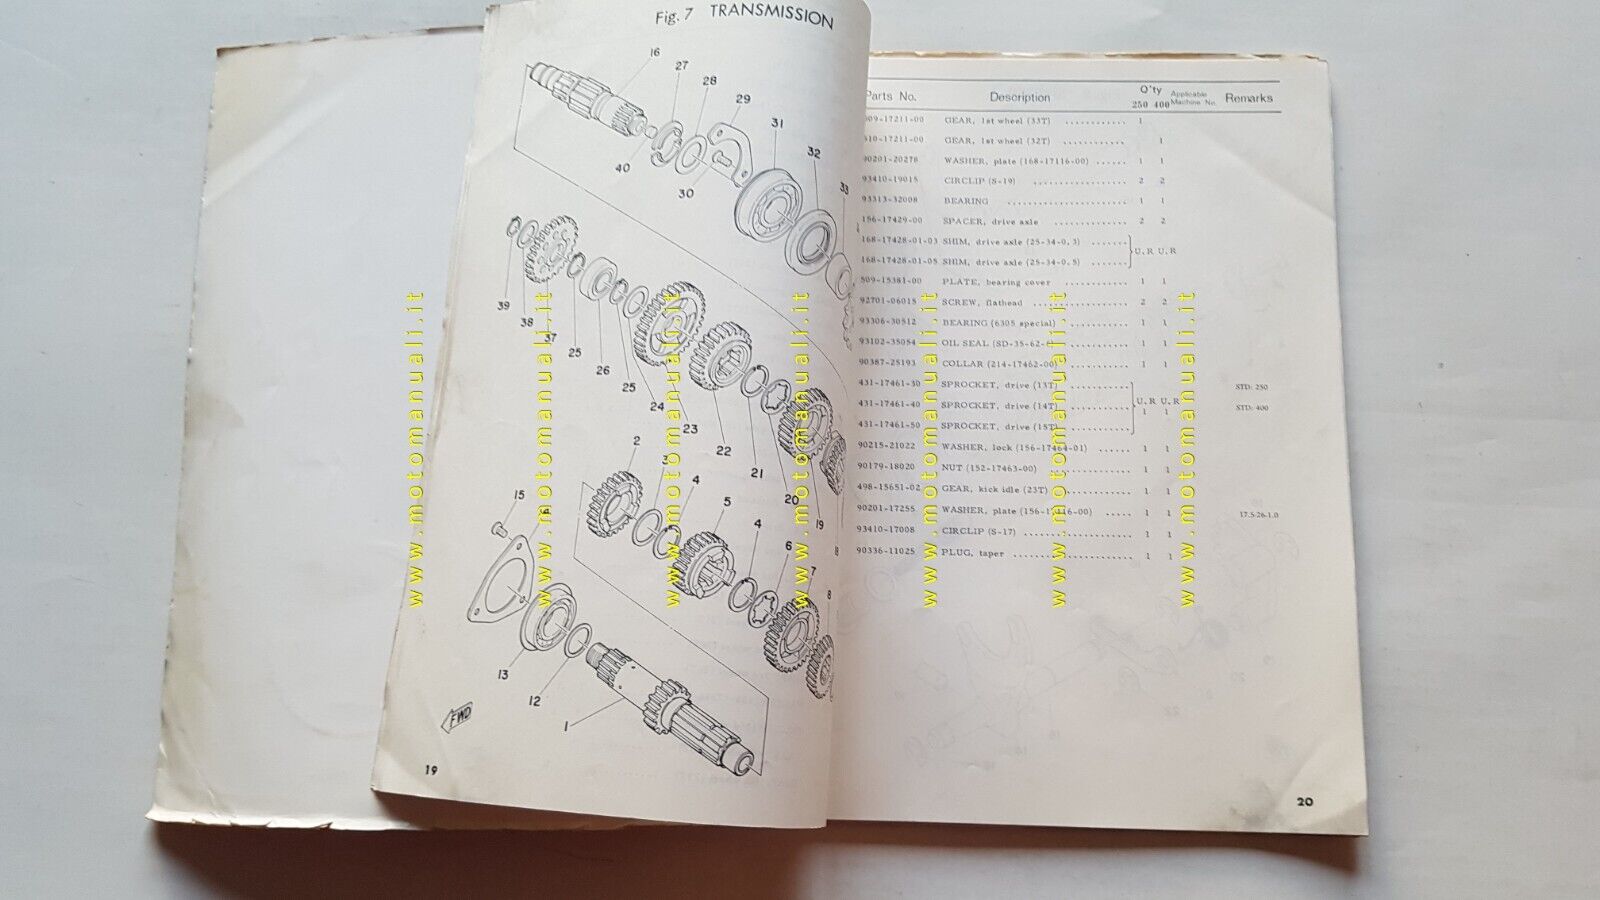 Fig. 7 TRANSMISSION
16
27
28
29
31
32
33
40
30
39
38
37
25
26
25
24
23
22
21
20
19
2
3
4
5
4
6
7
8
15
13
12
1
FWD
19
Parts No. Description Q'ty Applicable Machine No. Remarks
250 400
GEAR, 1st wheel (33T) 1
GEAR, 1st wheel (32T) 1
90201-20278 WASHER, plate (168-17116-00) 1 1
93410-19015 CIRCLIP (S-19) 2 2
93313-32008 BEARING 1 1
156-17429-00 SPACER, drive axle 2 2
168-17428-01-03 SHIM, drive axle (25-34-0.3)
U.R U.R
168-17428-01-05 SHIM, drive axle (25-34-0.5)
509-15381-00 PLATE, bearing cover 1 1
92701-06015 SCREW, flathead 2 2
93306-30512 BEARING (6305 special) 1 1
93102-35054 OIL SEAL (SD-35-62- 1 1
90387-25193 COLLAR (214-17462-00) 1 1
431-17461-30 SPROCKET, drive (13T) STD: 250
U.R U.R
431-17461-40 SPROCKET, drive (14T) 1 1 STD: 400
431-17461-50 SPROCKET, drive (15T)
90215-21022 WASHER, lock (156-17464-01) 1 1
90179-18020 NUT (152-17463-00) 1 1
498-15651-02 GEAR, kick idle (23T) 1 1
90201-17255 WASHER, plate (156-17116-00) 1 1 17.5-26-1.0
93410-17008 CIRCLIP (S-17) 1 1
90336-11025 PLUG, taper 1 1
20
www.motomanuali.it
www.motomanuali.it
www.motomanuali.it
www.motomanuali.it
www.motomanuali.it
www.motomanuali.it
www.motomanuali.it